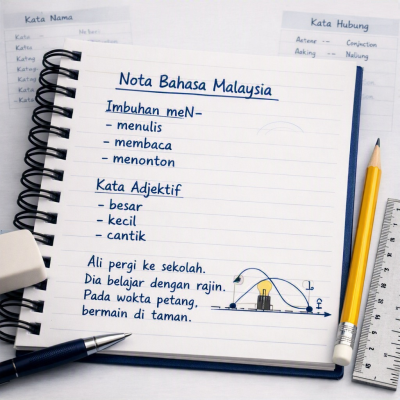 Kata Nama
Kata Hubung
Nota Bahasa Malaysia
Imbuhan meN-
- menulis
- membaca
- menonton
Kata Adjektif
- besar
- kecil
- cantik
Ali pergi ke sekolah.
Dia belajar dengan rajin.
Pada wokta petang,
bermain di taman.